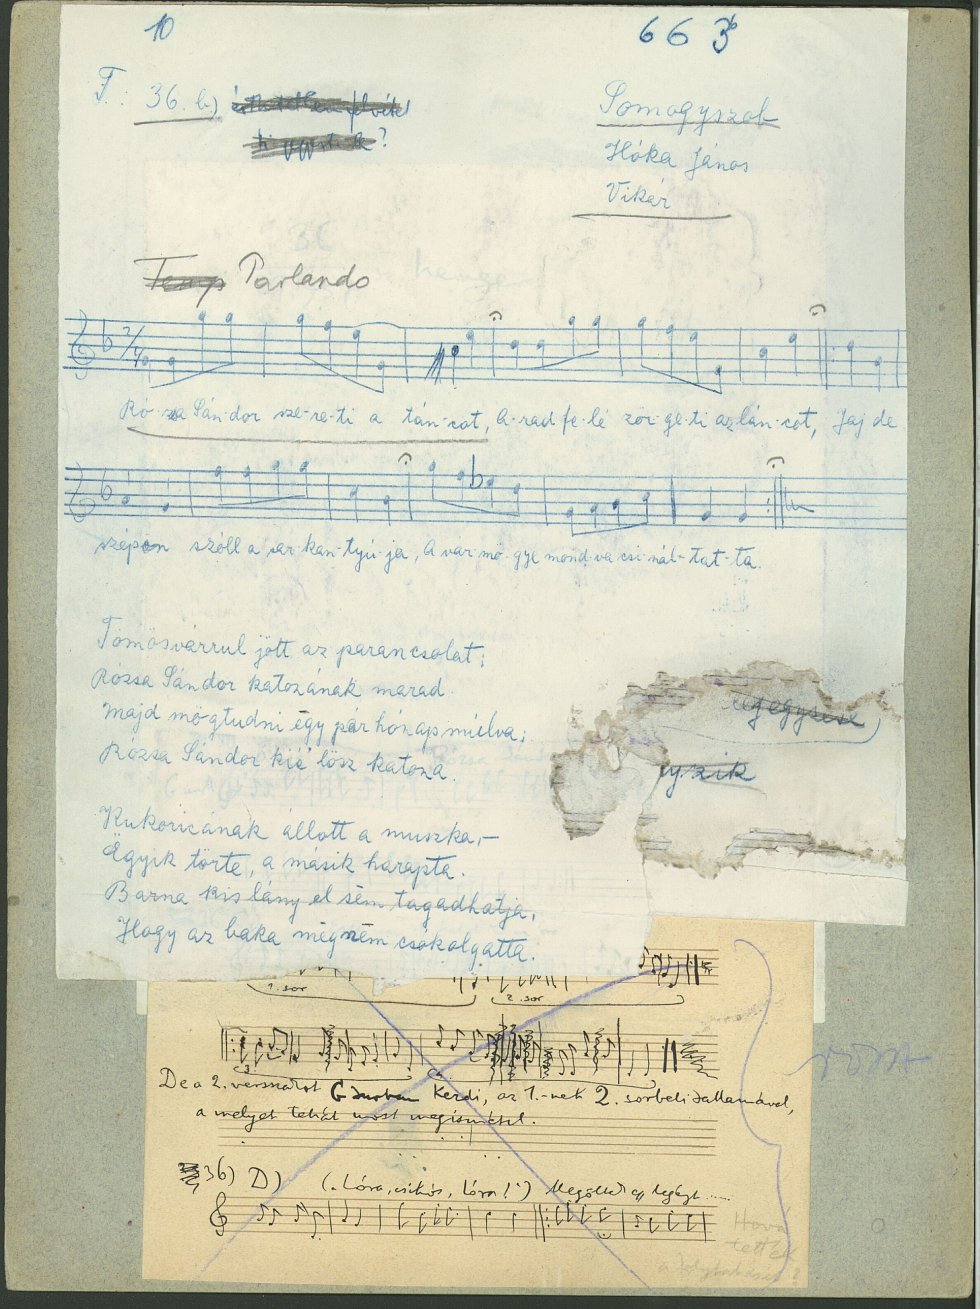 10
663
F. 36. b)
Somogyszob
Hóka János
Vikár
Parlando
2/4
Ró-za Sán-dor sze-re-ti a tán-cot, A-rad fe-lé zör-ge-ti az lán-cot, Jaj de
szépen szóll a sar-kan-tyú-ja, A vár-mö-gye mond-va csi-nál-tat-ta.
Tömösvárrul jött az parancsolat;
Rózsa Sándor katonának marad.
Majd mögtudni egy pár hónap mulva;
Rózsa Sándor kié lösz katona.
Kukoricának állott a muszka,-
Ägyik törte, a másik harapta.
Barna kislány el sem tagadhatja,
Hogy az baka mögnem csókolgatta.
1. sor
2. sor
De a 2. versszakot kezdi, az 1.-nek 2. sorbeli dallamával,
a melyet tehát most megismétel.
36) D) ("Lóra, csikós, lóra!")
Hová
tették
a